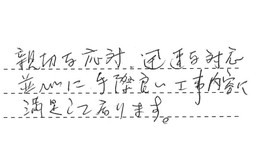 親切な応対、迅速な対応
並びに手際良い工事内容に
満足して居ります。